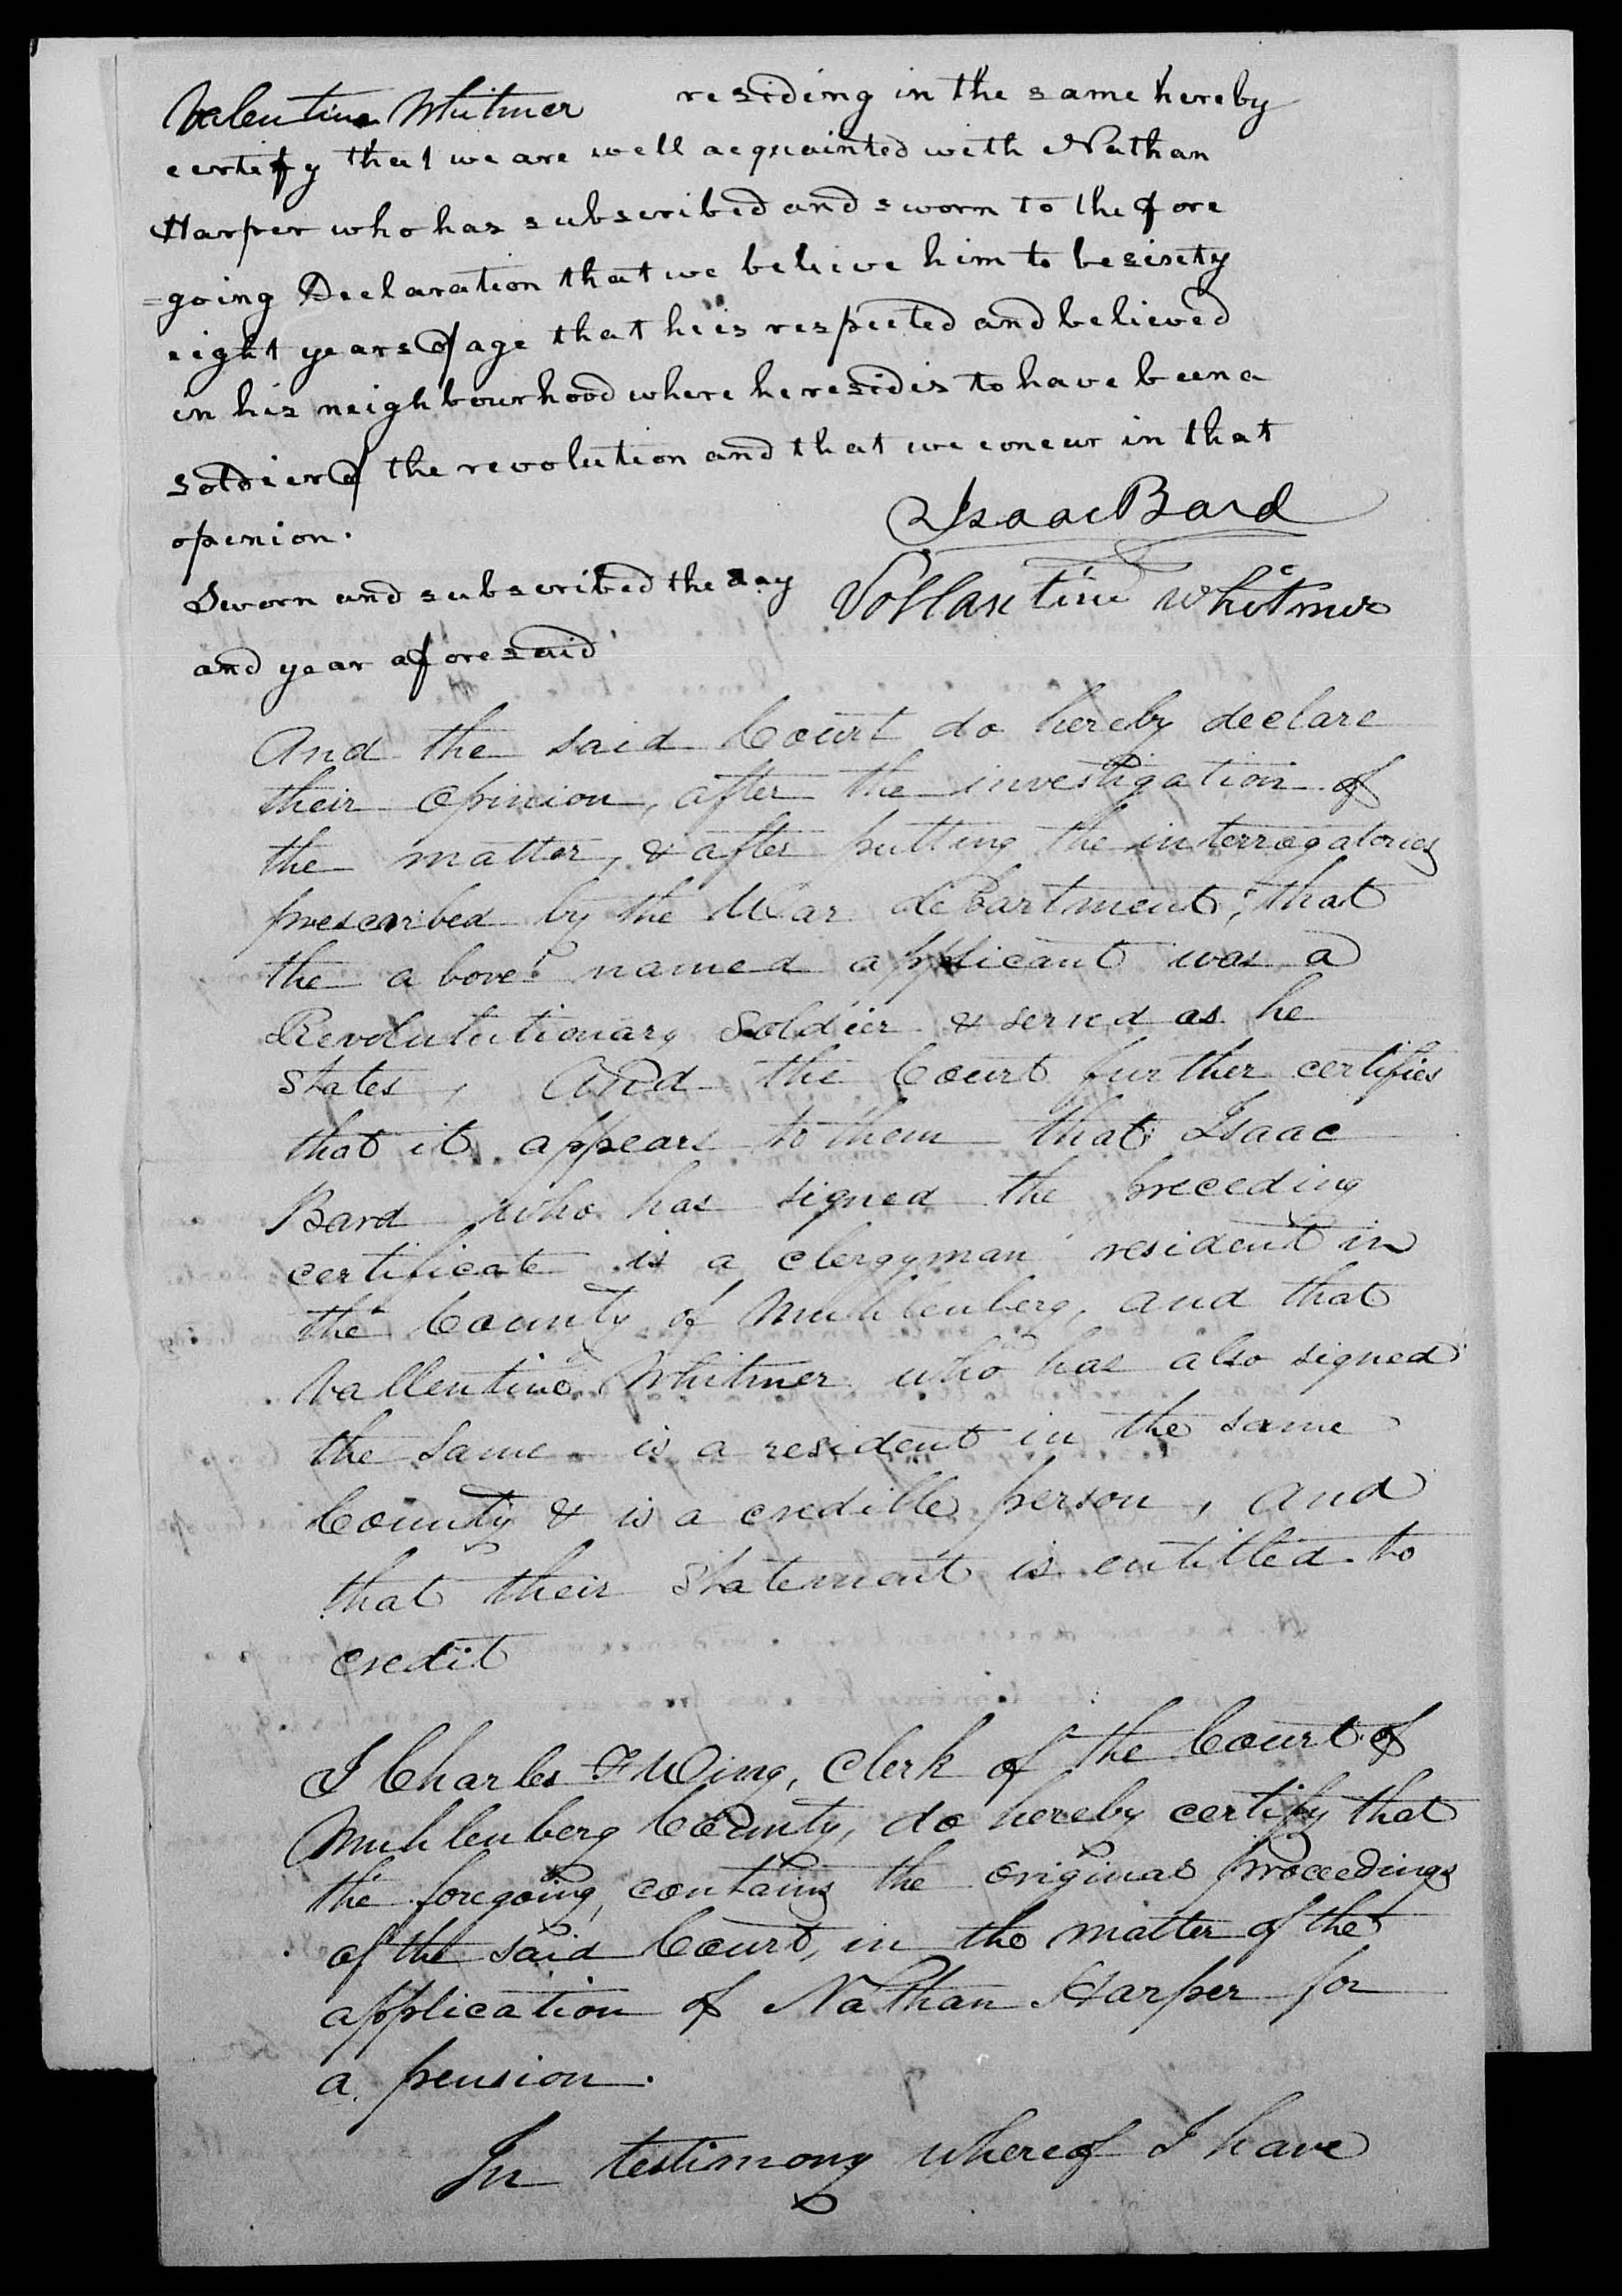 Valentine Whitmer residing in the same hereby
certify that we are well acquainted with Nathan
Harper who has subscribed and sworn to the fore
=going Declaration that we believe him to be sixty
eight years of age that he is respected and believed
in his neighbourhood where he resides to have been a
soldier of the revolution and that we concur in that
openion.
Isaac Bard
Sworn and subscribed the day
Vollantine Whitmer
and year aforesaid
And the said Court do hereby declare
their opinion, after the investigation of
the matter, & after putting the interrogatories
prescribed by the War department, that
the above named applicant was a
Revolutionary Soldier & served as he
States, And the Court further certifies
that it appears to them that Isaac
Bard who has signed the preceding
certificate is a clergyman resident in
the County of Muhlenberg, and that
Vallentine Whitmer who has also signed
the same is a resident in the same
County & is a credible person, and
that their Statement is entitled to
credit
I Charles F Wing, Clerk of the Court of
Muhlenberg County, do hereby certify that
the foregoing, contains the original proceedings
of the said Court, in the matter of the
application of Nathan Harper for
a pension.
In testimony whereof I have